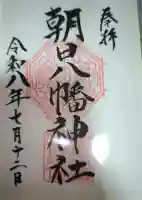 奉拝
朝日八幡神社
令和八年七月十二日